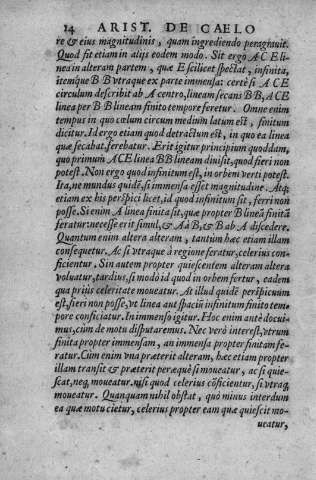 14 ARIST. DE CAELO
re & eius magnitudinis, quam ingrediendo peragrauit.
Quod fit etiam in alijs eodem modo. Sit ergo A C E li-
nea in alteram partem, quæ E scilicet spectat, infinita,
itemque B B vtraque ex parte immensa: certè si A C E
circulum describit ab A centro, lineam secans B B, A C E
linea per B B lineam finito tempore feretur. Omne enim
tempus in quo cœlum circum medium latum est, finitum
dicitur. Id ergo etiam quod detractum est, in quo ea linea
quæ secabat, ferebatur. Erit igitur principium quoddam,
quo primum A C E linea B B lineam diuisit, quod fieri non
potest. Non ergo quod infinitum est, in orbem verti potest.
Ita, ne mundus quidē, si immensa esset magnitudine. Atq;
etiam ex his perspici licet, id quod infinitum sit, ferri non
posse. Si enim A linea finita sit, quæ propter B lineā finitā
feratur: necesse erit simul, & A à B, & B ab A discedere.
Quantum enim altera alteram, tantum hæc etiam illam
consequetur. Ac si vtraque è regione feratur, celerius con-
ficientur. Sin autem propter quiescentem alteram altera
voluatur, tardius, si modò id quod in orbem fertur, eadem
qua priùs celeritate moueatur. At illud quidē perspicuum
est, fieri non posse, vt linea aut spaciū infinitum finito tem-
pore conficiatur. In immenso igitur. Hoc enim antè docui-
mus, cùm de motu disputaremus. Nec verò interest, vtrum
finita propter immensam, an immensa propter finitam fe-
ratur. Cùm enim vna præterit alteram, hæc etiam propter
illam transit & præterit peræquè si moueatur, ac si quie-
scat, neq; moueatur. nisi quod celerius cōficientur, si vtraq;
moueatur. Quanquam nihil obstat, quò minus interdum
ea quæ motu cietur, celerius propter eam quæ quiescit mo-
ueatur,